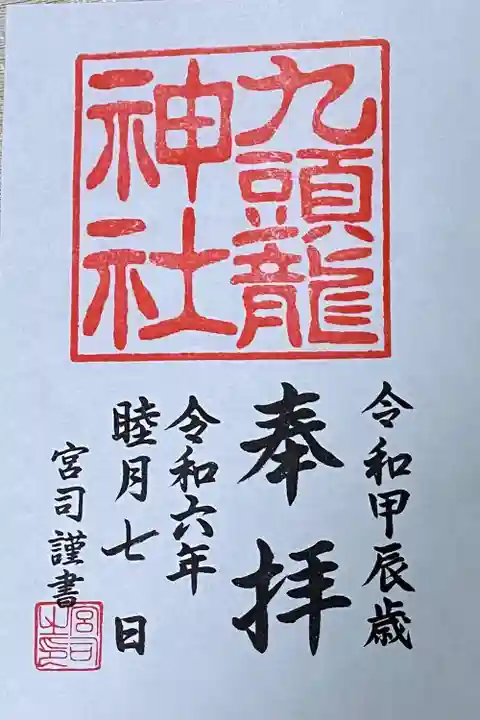 九頭龍
神社
令和甲辰歳
奉拝
令和六年
睦月七日
宮司謹書
宮司
之印